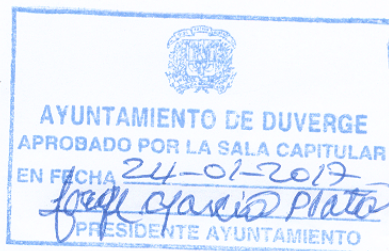 AYUNTAMIENTO DE DUVERGE
APROBADO POR LA SALA CAPITULAR
EN FECHA 24-01-2017
Jorge Garcia Plata
PRESIDENTE AYUNTAMIENTO